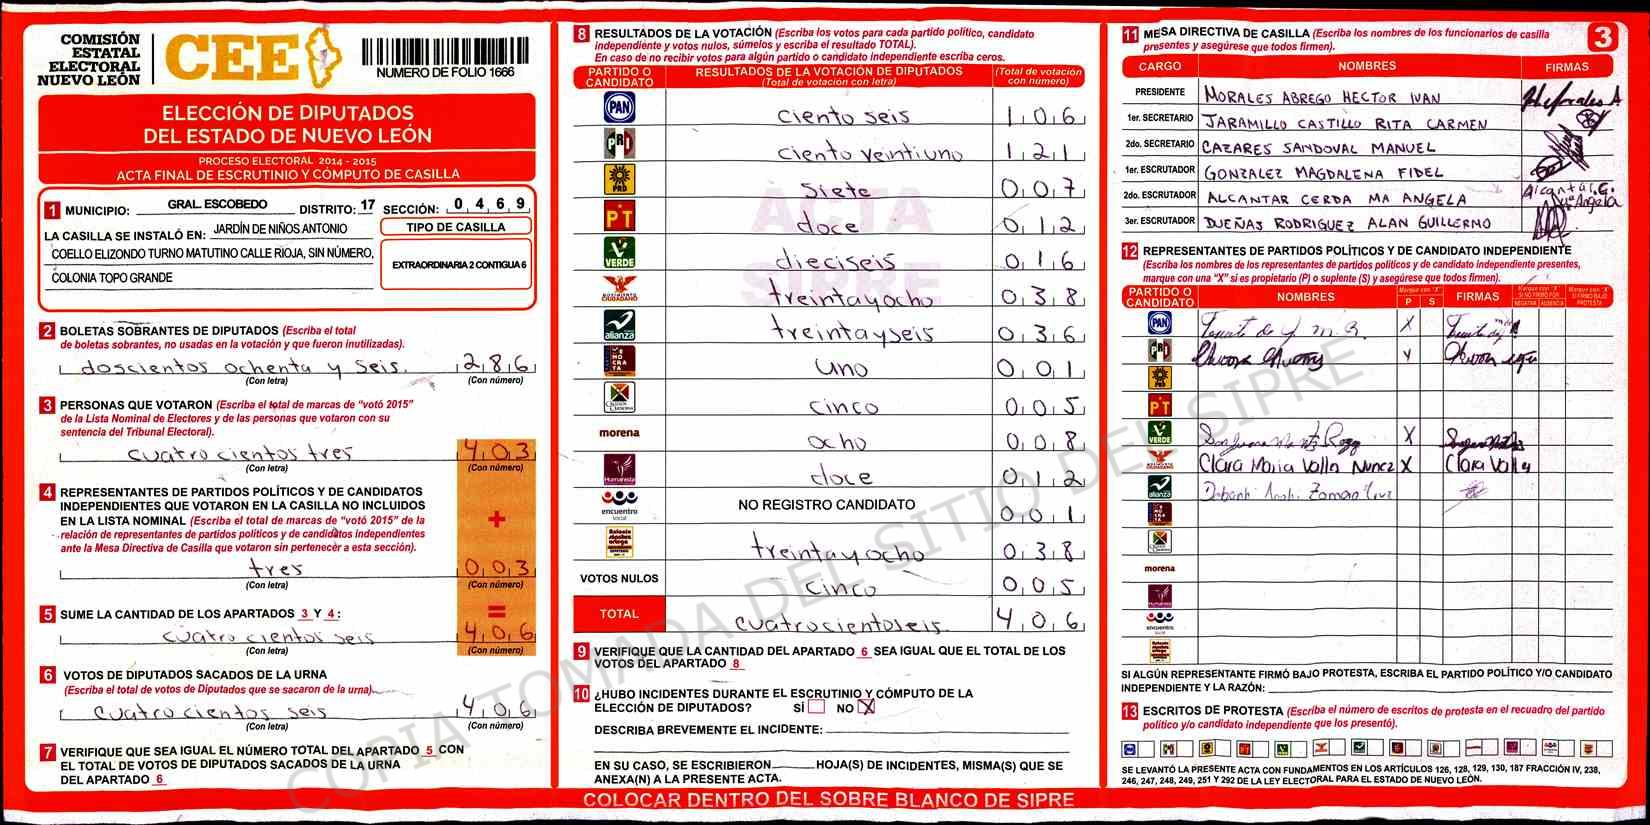 COMISIÓN
ESTATAL
ELECTORAL
NUEVO LEÓN
CEE
NUMERO DE FOLIO 1666
ELECCIÓN DE DIPUTADOS
DEL ESTADO DE NUEVO LEÓN
PROCESO ELECTORAL 2014 - 2015
ACTA FINAL DE ESCRUTINIO Y CÓMPUTO DE CASILLA
1 MUNICIPIO: GRAL. ESCOBEDO DISTRITO: 17 SECCIÓN: 0 4 6 9
LA CASILLA SE INSTALÓ EN: JARDÍN DE NIÑOS ANTONIO
COELLO ELIZONDO TURNO MATUTINO CALLE RIOJA, SIN NÚMERO,
COLONIA TOPO GRANDE
TIPO DE CASILLA
EXTRAORDINARIA 2 CONTIGUA 6
2 BOLETAS SOBRANTES DE DIPUTADOS (Escriba el total
de boletas sobrantes, no usadas en la votación y que fueron inutilizadas).
doscientos ochenta y seis. 2 8 6
(Con letra) (Con número)
3 PERSONAS QUE VOTARON (Escriba el total de marcas de "votó 2015"
de la Lista Nominal de Electores y de las personas que votaron con su
sentencia del Tribunal Electoral).
cuatro cientos tres 4 0 3
(Con letra) (Con número)
4 REPRESENTANTES DE PARTIDOS POLÍTICOS Y DE CANDIDATOS
INDEPENDIENTES QUE VOTARON EN LA CASILLA NO INCLUIDOS
EN LA LISTA NOMINAL (Escriba el total de marcas de "votó 2015" de la
relación de representantes de partidos políticos y de candidatos independientes
ante la Mesa Directiva de Casilla que votaron sin pertenecer a esta sección).
+
tres 0 0 3
(Con letra) (Con número)
5 SUME LA CANTIDAD DE LOS APARTADOS 3 Y 4: =
cuatro cientos seis 4 0 6
(Con letra) (Con número)
6 VOTOS DE DIPUTADOS SACADOS DE LA URNA
(Escriba el total de votos de Diputados que se sacaron de la urna)
cuatro cientos seis 4 0 6
(Con letra) (Con número)
7 VERIFIQUE QUE SEA IGUAL EL NÚMERO TOTAL DEL APARTADO 5 CON
EL TOTAL DE VOTOS DE DIPUTADOS SACADOS DE LA URNA
DEL APARTADO 6
8 RESULTADOS DE LA VOTACIÓN (Escriba los votos para cada partido político, candidato
independiente y votos nulos, súmelos y escriba el resultado TOTAL).
En caso de no recibir votos para algún partido o candidato independiente escriba ceros.
PARTIDO O CANDIDATO RESULTADOS DE LA VOTACIÓN DE DIPUTADOS (Total de votación con letra) (Total de votación con número)
PAN ciento seis 1 0 6
PRI ciento veintiuno 1 2 1
PRD siete 0 0 7
PT doce 0 1 2
VERDE dieciseis 0 1 6
MOVIMIENTO CIUDADANO treinta y ocho 0 3 8
alianza treinta y seis 0 3 6
uno 0 0 1
cinco 0 0 5
morena ocho 0 0 8
Humanista doce 0 1 2
encuentro social NO REGISTRO CANDIDATO 0 0 1
treinta y ocho 0 3 8
VOTOS NULOS cinco 0 0 5
TOTAL cuatrocientos seis 4 0 6
ACTA
SIPRE
9 VERIFIQUE QUE LA CANTIDAD DEL APARTADO 6 SEA IGUAL QUE EL TOTAL DE LOS
VOTOS DEL APARTADO 8
10 ¿HUBO INCIDENTES DURANTE EL ESCRUTINIO Y CÓMPUTO DE LA
ELECCIÓN DE DIPUTADOS? SÍ NO X
DESCRIBA BREVEMENTE EL INCIDENTE:
EN SU CASO, SE ESCRIBIERON HOJA(S) DE INCIDENTES, MISMA(S) QUE SE
ANEXA(N) A LA PRESENTE ACTA.
COLOCAR DENTRO DEL SOBRE BLANCO DE SIPRE
11 MESA DIRECTIVA DE CASILLA (Escriba los nombres de los funcionarios de casilla
presentes y asegúrese que todos firmen).
3
CARGO NOMBRES FIRMAS
PRESIDENTE MORALES ABREGO HECTOR IVAN
1er. SECRETARIO JARAMILLO CASTILLO RITA CARMEN
2do. SECRETARIO CAZARES SANDOVAL MANUEL
1er. ESCRUTADOR GONZALEZ MAGDALENA FIDEL
2do. ESCRUTADOR ALCANTAR CERDA MA ANGELA
3er. ESCRUTADOR DUEÑAS RODRIGUEZ ALAN GUILLERMO
12 REPRESENTANTES DE PARTIDOS POLÍTICOS Y DE CANDIDATO INDEPENDIENTE
(Escriba los nombres de los representantes de partidos políticos y de candidato independiente presentes,
marque con una "X" si es propietario (P) o suplente (S) y asegúrese que todos firmen).
PARTIDO O CANDIDATO NOMBRES Marque con "X" P S FIRMAS Marque con "X" SI NO FIRMÓ POR: NEGATIVA AUSENCIA Marque con "X" SI FIRMÓ BAJO PROTESTA
PAN X
PRI
PRD
PT
VERDE X
Clara Maria Valla Nuncz X Clara Valla
alianza
morena
Humanista
encuentro social
SI ALGÚN REPRESENTANTE FIRMÓ BAJO PROTESTA, ESCRIBA EL PARTIDO POLÍTICO Y/O CANDIDATO
INDEPENDIENTE Y LA RAZÓN:
13 ESCRITOS DE PROTESTA (Escriba el número de escritos de protesta en el recuadro del partido
político y/o candidato independiente que los presentó).
SE LEVANTÓ LA PRESENTE ACTA CON FUNDAMENTOS EN LOS ARTÍCULOS 126, 128, 129, 130, 187 FRACCIÓN IV, 238,
246, 247, 248, 249, 251 Y 292 DE LA LEY ELECTORAL PARA EL ESTADO DE NUEVO LEÓN.
COPIA TOMADA DEL SITIO DEL SIPRE